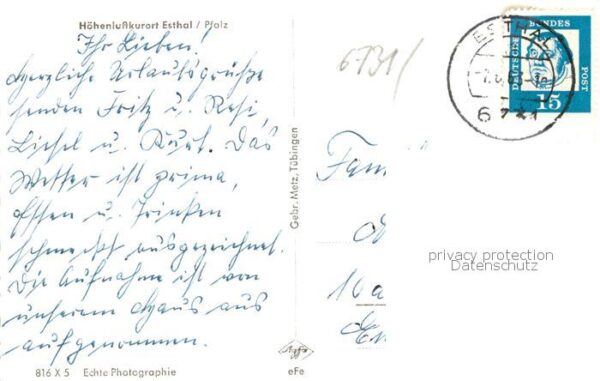 Höhenluftkurort Esthal / Pfalz
Ihr Lieben!
Herzliche Urlaubsgrüße
senden Fritz u. Resi,
Liesel u. Kurt. Das
Wetter ist prima,
Essen u. Trinken
schmeckt ausgezeichnet.
Die Aufnahme ist von
unserem Haus aus
aufgenommen.
816 X 5 Echte Photographie
Gebr. Metz, Tübingen
Agfa
eFe
6731/
ESTHAL
6731
DEUTSCHE BUNDES POST
15
Fam
privacy protection
Datenschutz